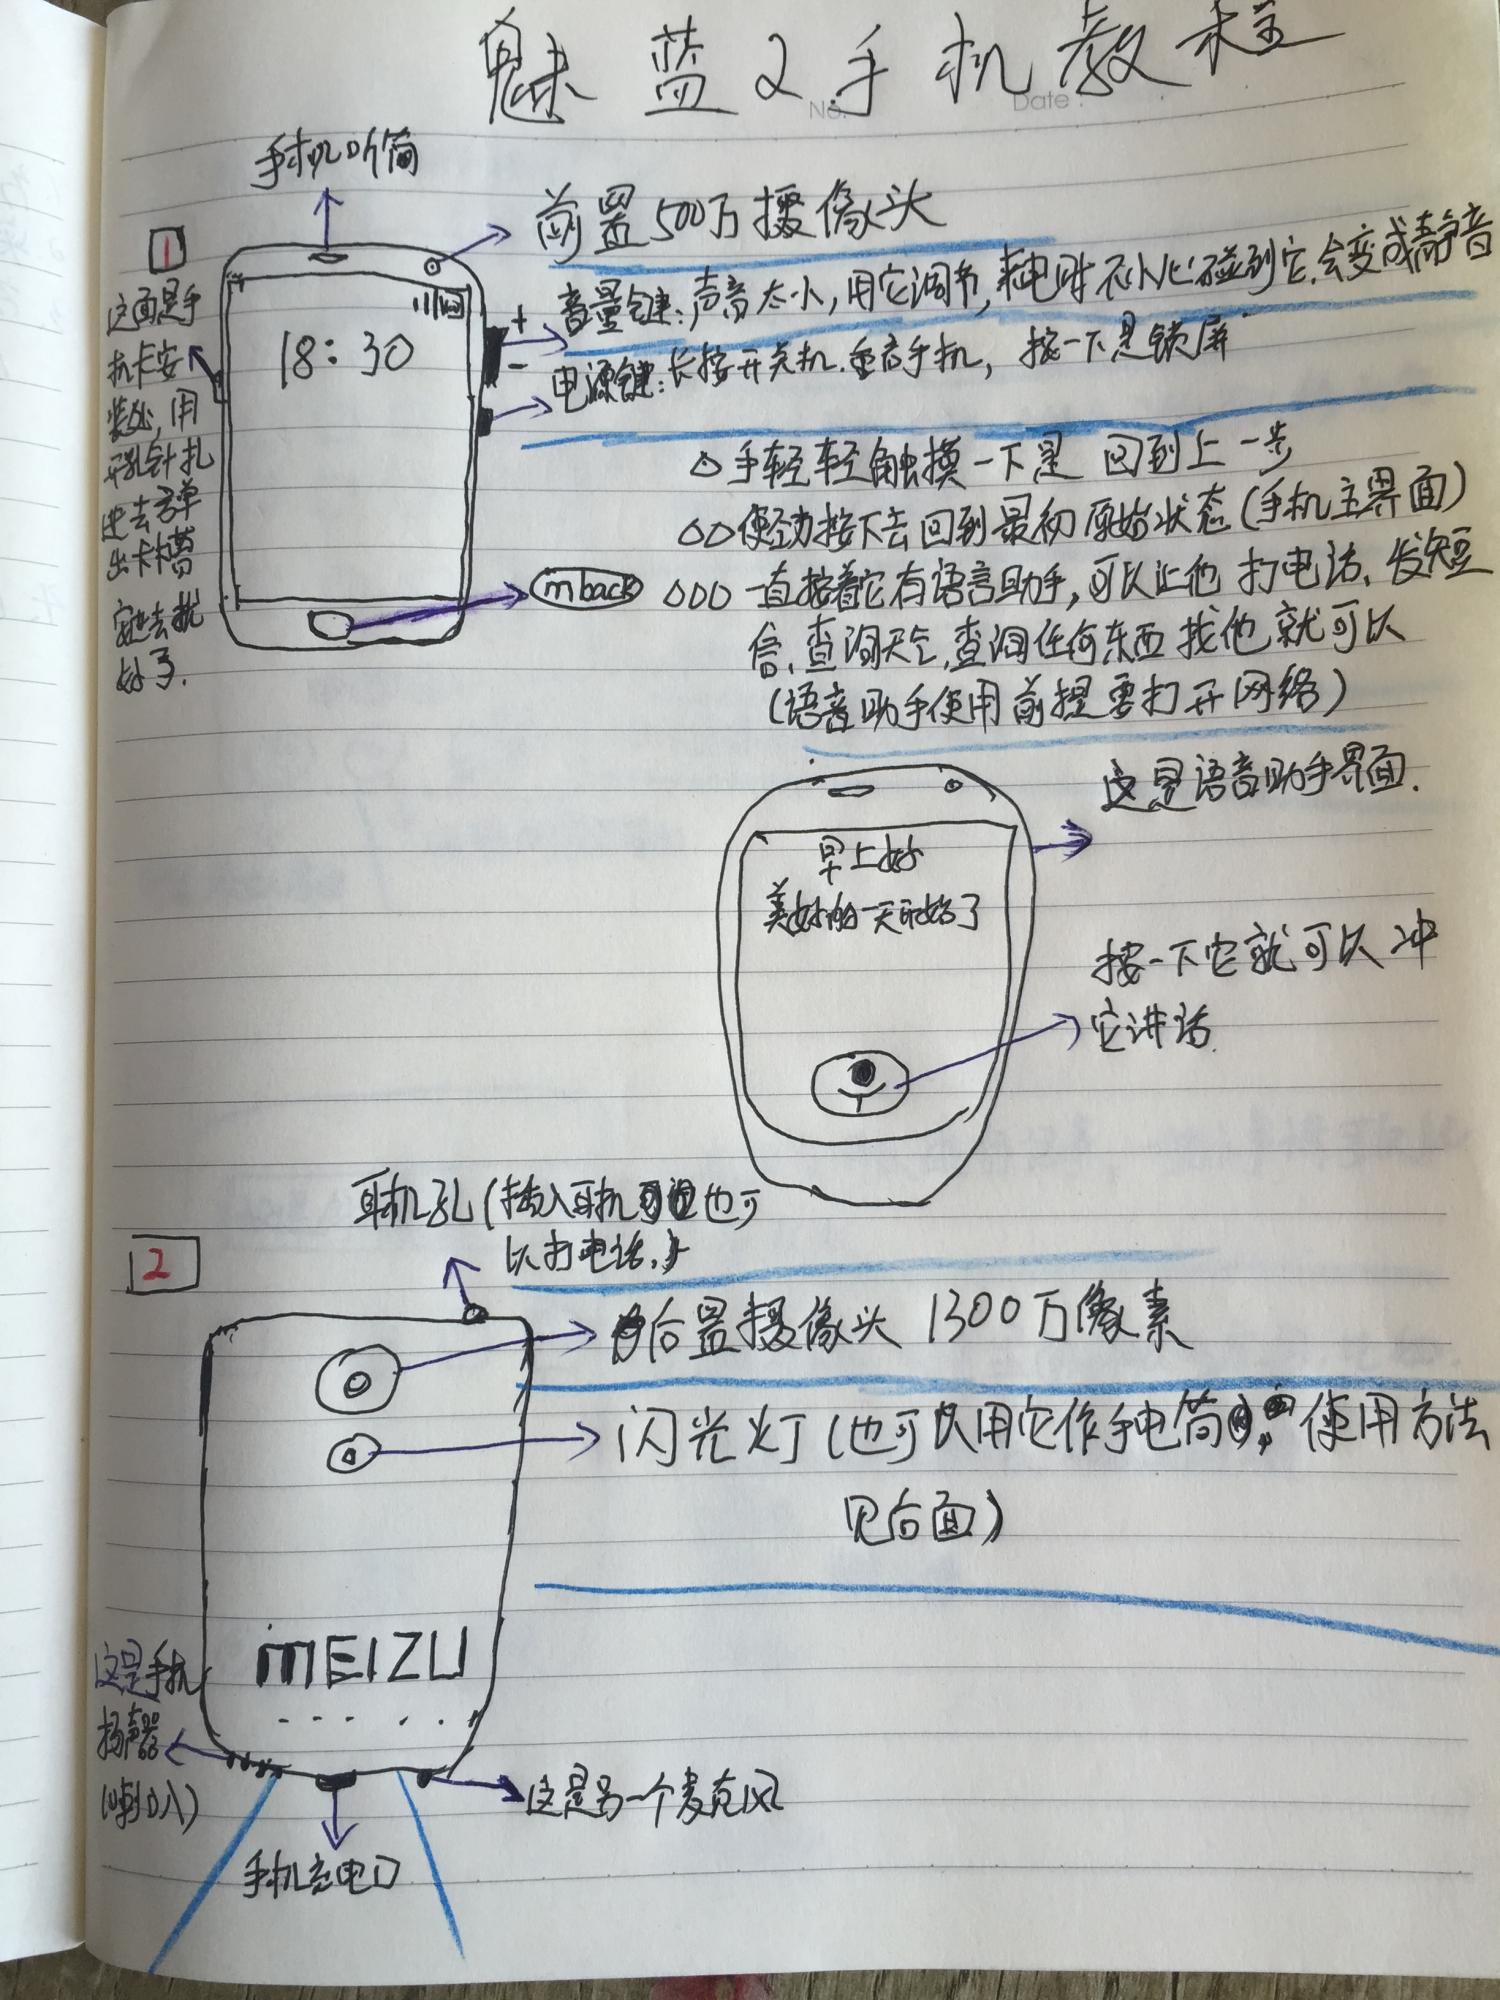 魅蓝2手机教程
No.
Date
手机听筒
1
前置500万摄像头
这面是手
机卡安
装处,用
开孔针扎
进去弹
出卡槽
安进去就
好了.
18:30
+
-
音量键:声音大小,用它调节,来电时不小心碰到它.会变成静音
电源键:长按开关机.重启手机,按一下是锁屏
手轻轻触摸一下是 回到上一步
使劲按下去回到最初原始状态(手机主界面)
mback
一直按着它有语言助手,可以让他 打电话、发短
信、查询天气,查询任何东西找他就可以
(语音助手使用前提要打开网络)
这是语音助手界面.
早上好
美好的一天开始了
按一下它就可以冲
它讲话.
耳机孔(插入耳机 也可
以打电话.)
2
后置摄像头 1300万像素
闪光灯(也可以用它作手电筒,使用方法
见后面)
MEIZU
这是手机
扬声器
(喇叭)
手机充电口
这是另一个麦克风